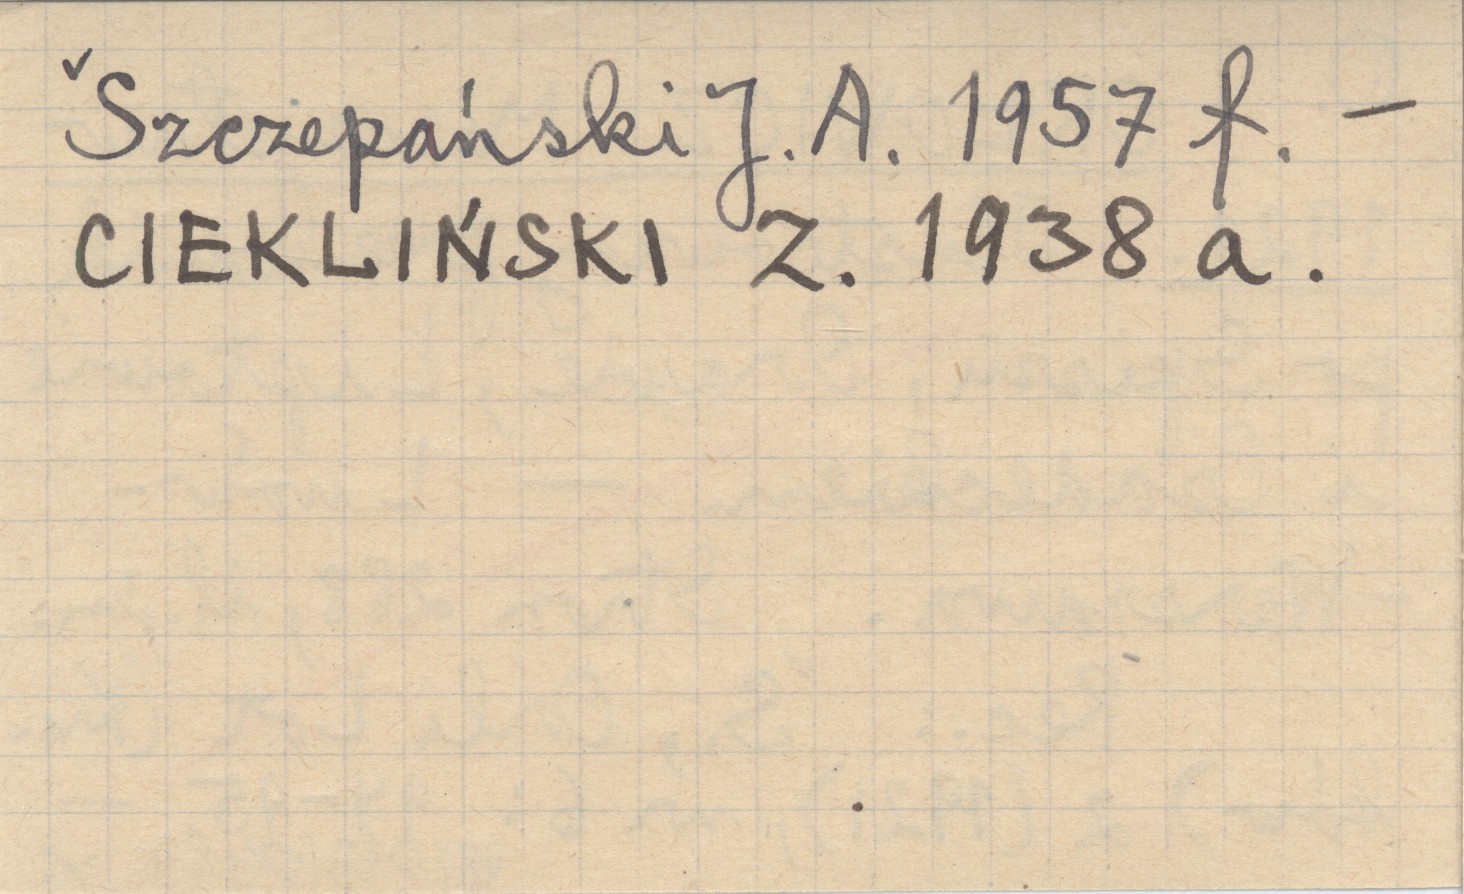 Szczepański J. A. 1957 f. –
CIEKLIŃSKI Z. 1938 a.